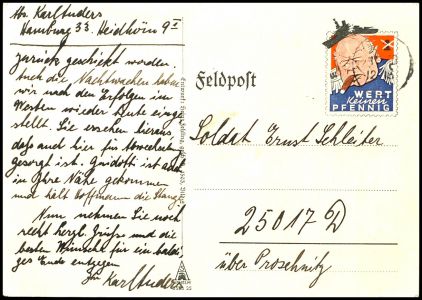 Abs. Karl Tuders
Hamburg 33. Heidhörn 9 I
zurück geschickt worden.
Auch die Nachtwachen haben
wir nach den Erfolgen im
Westen wieder heute einge
stellt. Sie ersehen hieraus,
daß auch hier für Abwechslung
gesorgt ist. Guidotti ist auch
in Ihre Nähe gekommen
und hält Hoffmann die Stange.
Nun nehmen Sie noch
recht herzl. Grüße und die
besten Wünsche für ein baldi
ges Ende entgegen
Ihr Karl Tuders
Feldpost
WERT
keinen
PFENNIG
Soldat Ernst Schleiter
25017 D
über Proschnitz